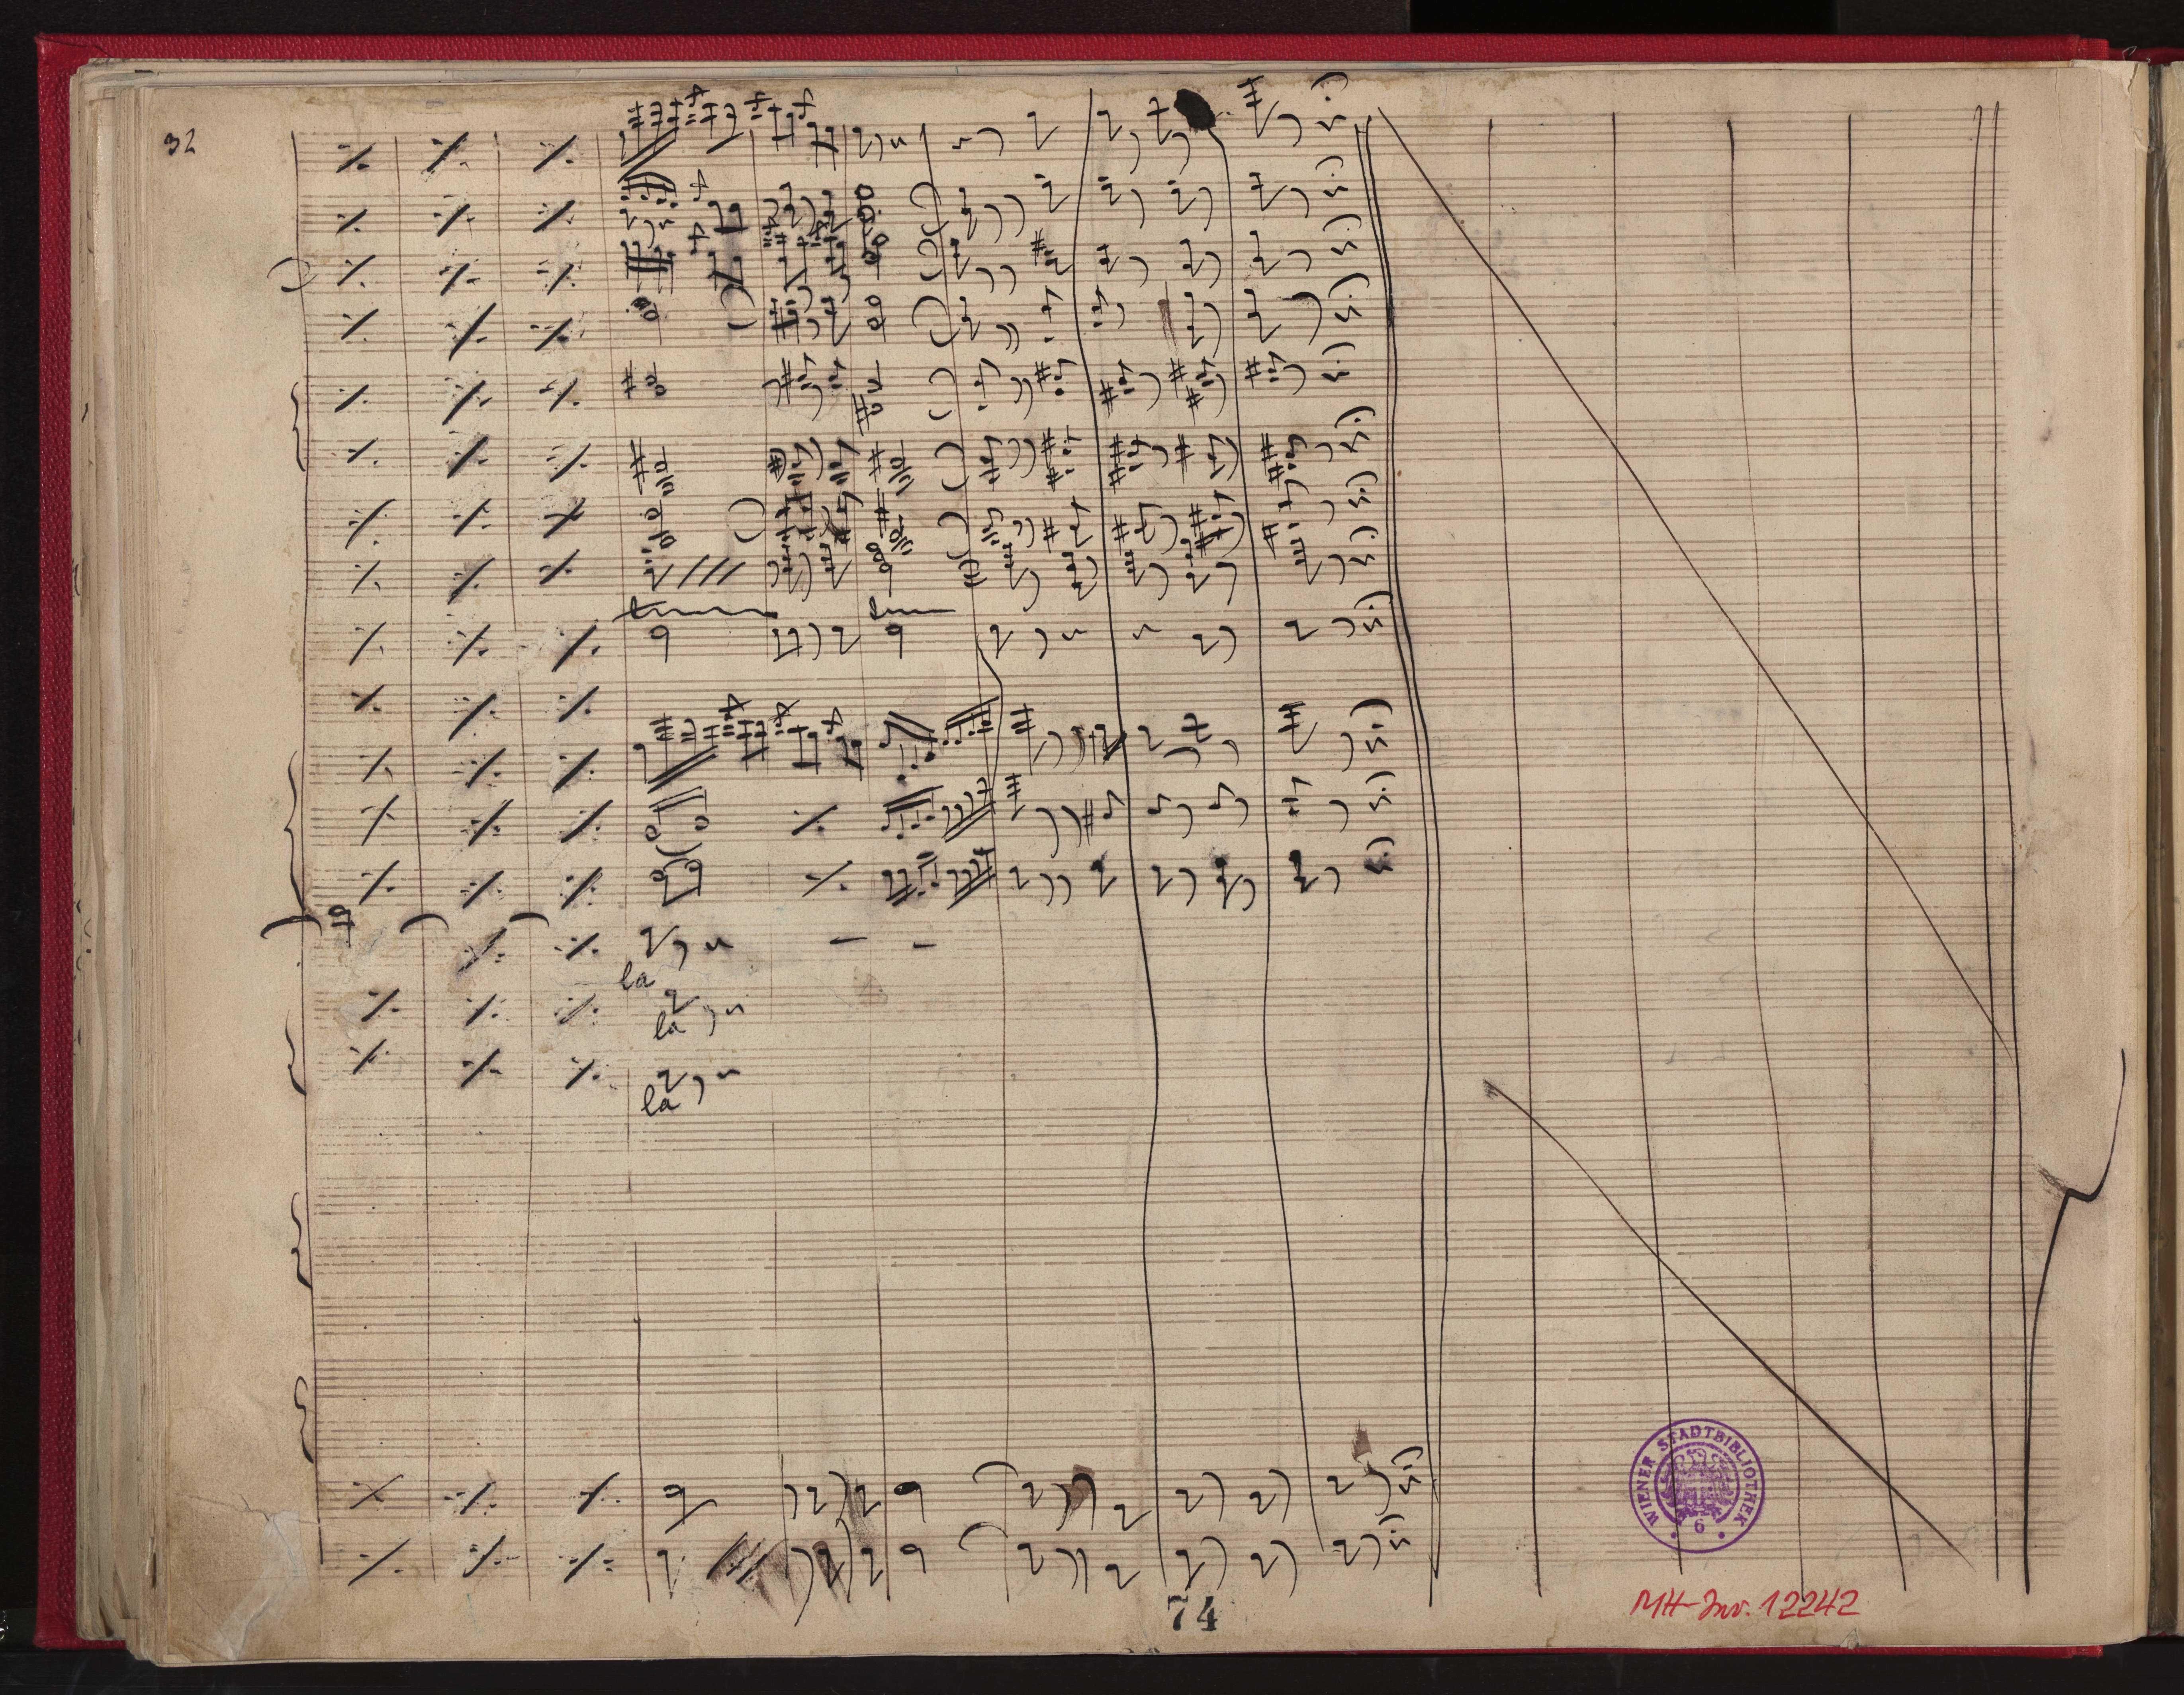 32
la
la
la
WIENER STADTBIBLIOTHEK
6
74
MH-Inv. 12242